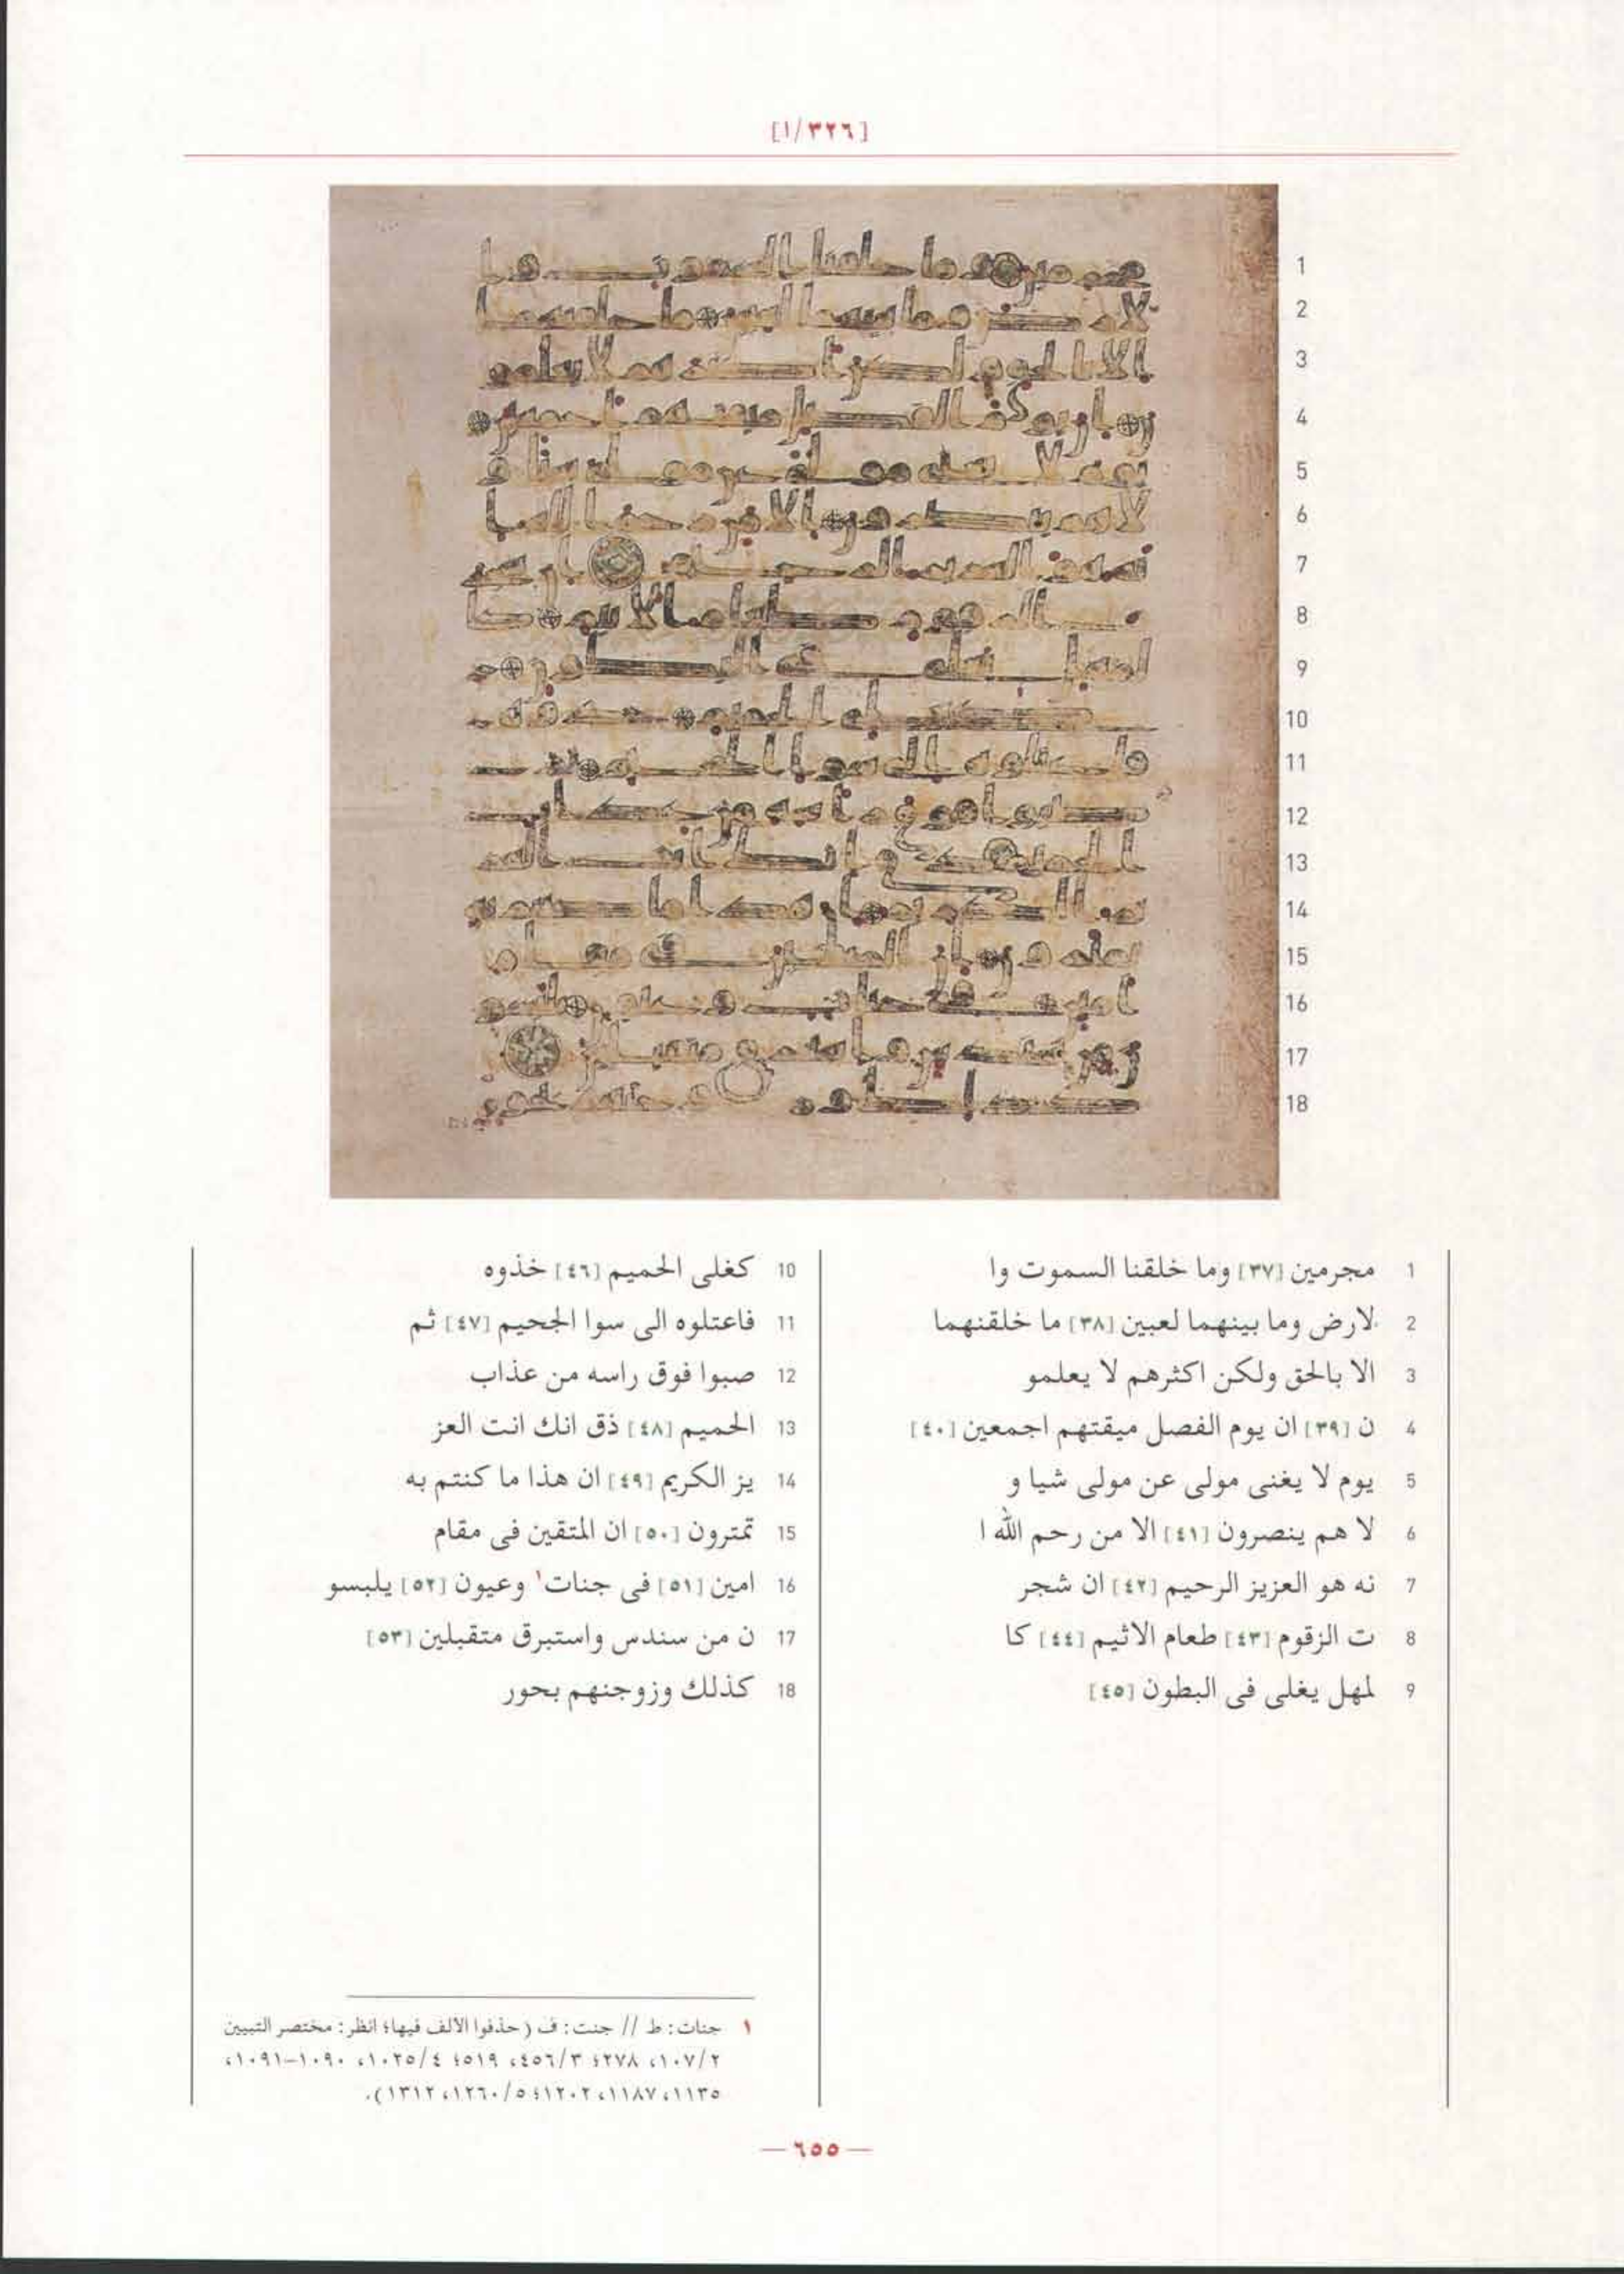 [١/٣٢٦]
1
2
3
4
5
6
7
8
9
10
11
12
13
14
15
16
17
18
1 مجرمين [٣٧] وما خلقنا السموت وا
2 لارض وما بينهما لعبين [٣٨] ما خلقنهما
3 الا بالحق ولكن اكثرهم لا يعلمو
4 ن [٣٩] ان يوم الفصل ميقتهم اجمعين [٤٠]
5 يوم لا يغنى مولى عن مولى شيا و
6 لا هم ينصرون [٤١] الا من رحم الله ا
7 نه هو العزيز الرحيم [٤٢] ان شجر
8 ت الزقوم [٤٣] طعام الاثيم [٤٤] كا
9 لمهل يغلى فى البطون [٤٥]
10 كغلى الحميم [٤٦] خذوه
11 فاعتلوه الى سوا الجحيم [٤٧] ثم
12 صبوا فوق راسه من عذاب
13 الحميم [٤٨] ذق انك انت العز
14 يز الكريم [٤٩] ان هذا ما كنتم به
15 تمترون [٥٠] ان المتقين فى مقام
16 امين [٥١] فى جنات١ وعيون [٥٢] يلبسو
17 ن من سندس واستبرق متقبلين [٥٣]
18 كذلك وزوجنهم بحور
١ جنات: ط // جنت: ف (حذفوا الألف فيها؛ انظر: مختصر التبيين
١٠٧/٢، ٢٧٨؛ ٤٥٦/٣، ٥١٩؛ ١٠٢٥/٤، ١٠٩٠–١٠٩١،
١١٣٥، ١١٨٧، ١٢٠٢؛ ١٢٦٠/٥، ١٣١٢).
— ٦٥٥ —